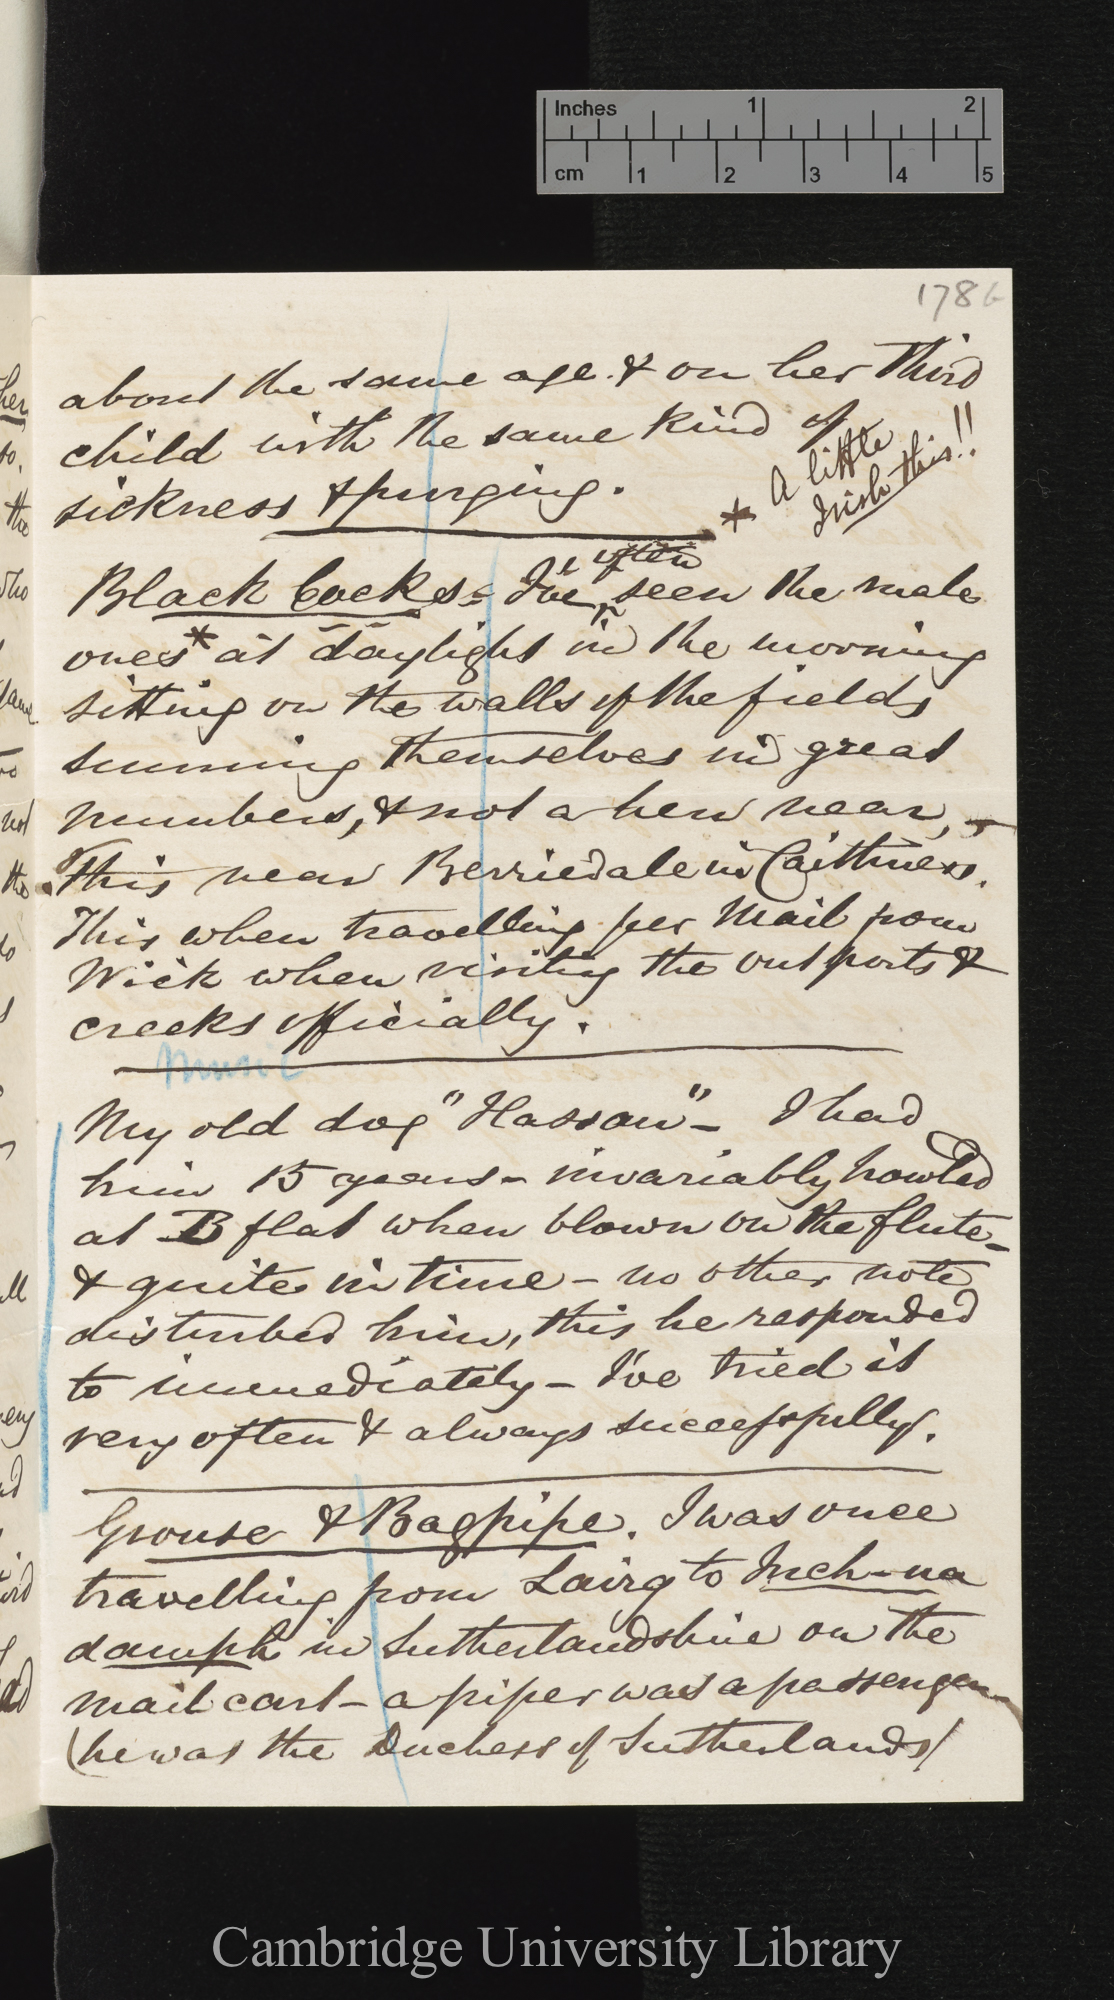 Inches 1 2
cm 1 2 3 4 5
178
about the same age & on her third
child with the same kind of
sickness & purging.
* A little
Irish this!!
Black Cocks - I've often seen the male
ones* at daylight in the morning
sitting on the walls of the fields
sunning themselves in great
numbers, & not a hen near, -
This near Berriedale in Caithness.
This when travelling per Mail from
Wick when visiting the outports &
creeks officially.
Music
My old dog "Hassan" - I had
him 15 years - invariably howled
at B flat when blown on the flute -
& quite in time - no other note
disturbed him, this he responded
to immediately - I've tried it
very often & always successfully.
Grouse & Bagpipe. I was once
travelling from Lairg to Inch-na
damph in Sutherlandshire on the
mail cart - a piper was a passenger
(he was the Duchess of Sutherlands)
Cambridge University Library